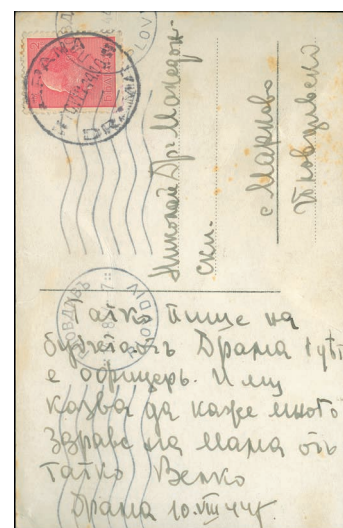 Николай Др. Македон-
ски.
с Марково
Пловдивско
Татко пише на
Драма
е офицеръ. И му
казва да каже много
здраве на мама отъ
татко Велко
Драма 10.VIII 44г
DRAMA
PLOVDIV